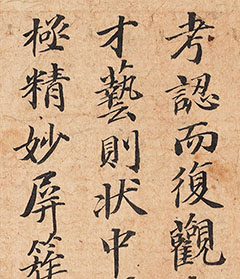 考認而復觀
才藝則状中
極精妙屏簇